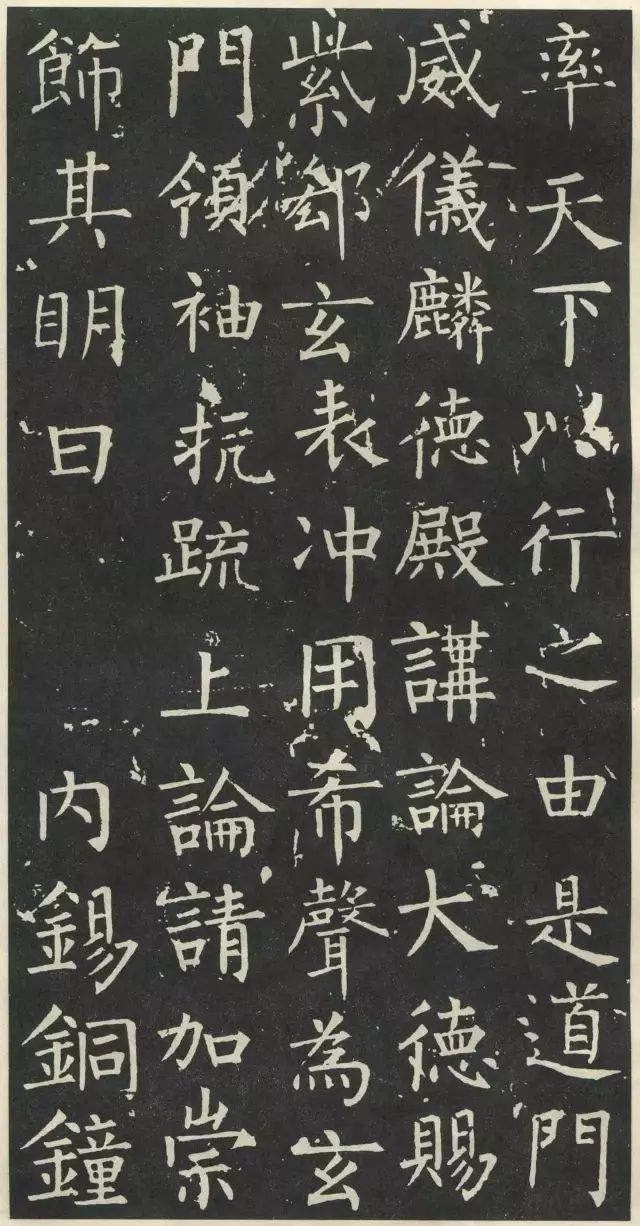 率天下以行之由是道門
威儀麟德殿講論大德賜
紫鄒玄表冲用希聲為玄
門領袖抗疏上論請加崇
飾其明日　內錫銅鐘